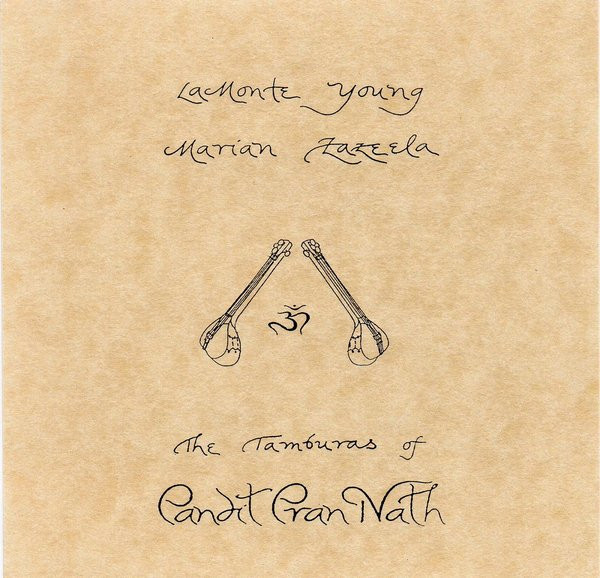 LaMonte Young
Marian Zazeela
ॐ
The Tamburas of
Pandit Pran Nath